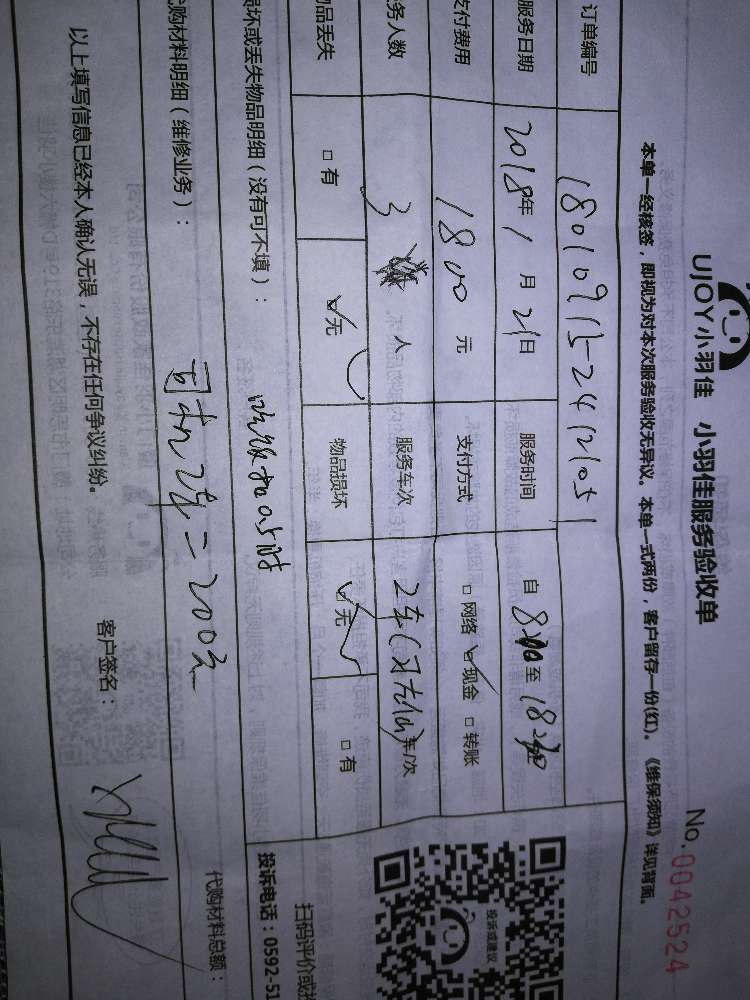 UJOY小羽佳 小羽佳服务验收单
No. 0042524
本单一经核签，即视为对本次服务验收无异议。本单一式两份，客户留存一份(红)。《维保须知》详见背面。
订单编号 180109152421051
服务日期 2018年1月21日 服务时间 自8:00至18:00
支付费用 1800元 支付方式 □网络 ☑现金 □转账
务人数 3 人 服务车次 2车 车/次
物品丢失 □有 ☑无 物品损坏 ☑无 □有
损坏或丢失物品明细（没有可不填）：
吃饭 小时
代购材料明细（维修业务）：
司机2车=200元
代购材料总额：
以上填写信息已经本人确认无误，不存在任何争议纠纷。 客户签名：
投诉或建议
扫码评价或
投诉电话：0592-51